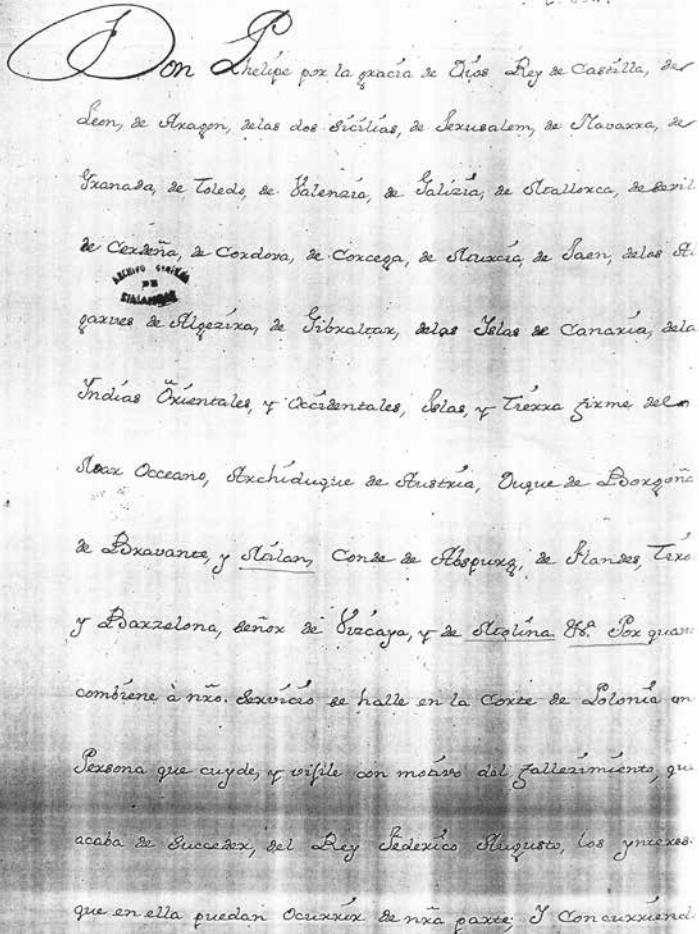 Don Phelipe por la gracia de Dios Rey de Castilla, de
Leon, de Aragon, delas dos Sicilias, de Jerusalem, de Navarra, de
Granada, de Toledo, de Valenzia, de Galizia, de Mallorca, de Sevil
de Cerdeña, de Cordova, de Corcega, de Murcia, de Jaen, delos Al
ARCHIVO GENERAL
DE
SIMANCAS
garves de Algezira, de Gibraltar, delas Yslas de Canaria, dela
Yndias Orientales, y Occidentales, Yslas, y Tierra firme del
Mar Occeano, Archiduque de Austria, Duque de Borgoña
de Bravante, y Milan, Conde de Abspurg, de Flandes, Tiro
y Barzelona, Señor de Vizcaya, y de Molina &ª. Por quan
combiene à nro. Servicio se halle en la Corte de Polonia un
Persona que cuyde, y vijile con motivo del fallezimiento, que
acaba de Succeder, del Rey Federico Augusto, los yntereses
que en ella puedan Ocurrir de nra parte; Y Concurriend